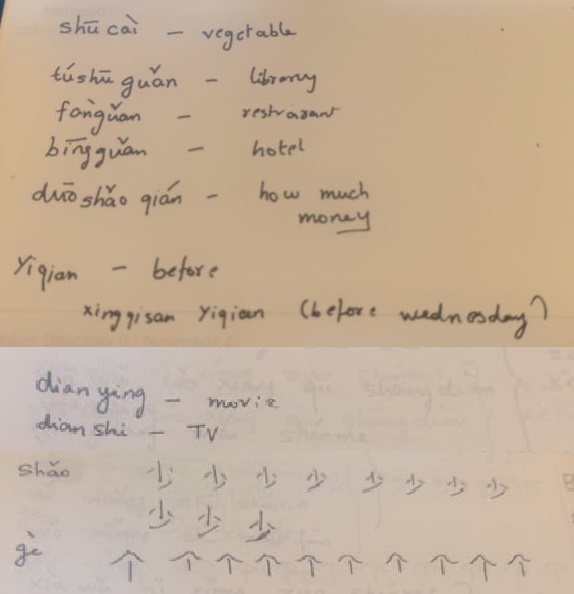 shū cài - vegetable
túshū guǎn - library
fànguǎn - restrarant
bīngguǎn - hotel
duō shǎo qián - how much
money
Yiqian - before
xingqisan yiqian (before wednesday)
dianying - movie
dian shi - TV
shǎo 少 少 少 少 少 少 少 少
少 少 少
gè 个 个 个 个 个 个 个 个 个 个